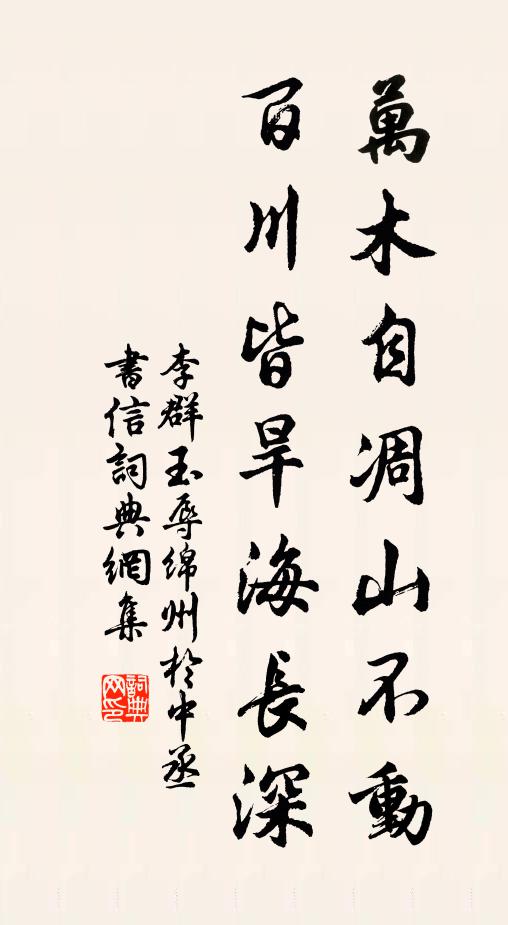 萬木自凋山不動
百川皆旱海長深
李群玉辱绵州於中丞
書信詞典網集
詞典
网印